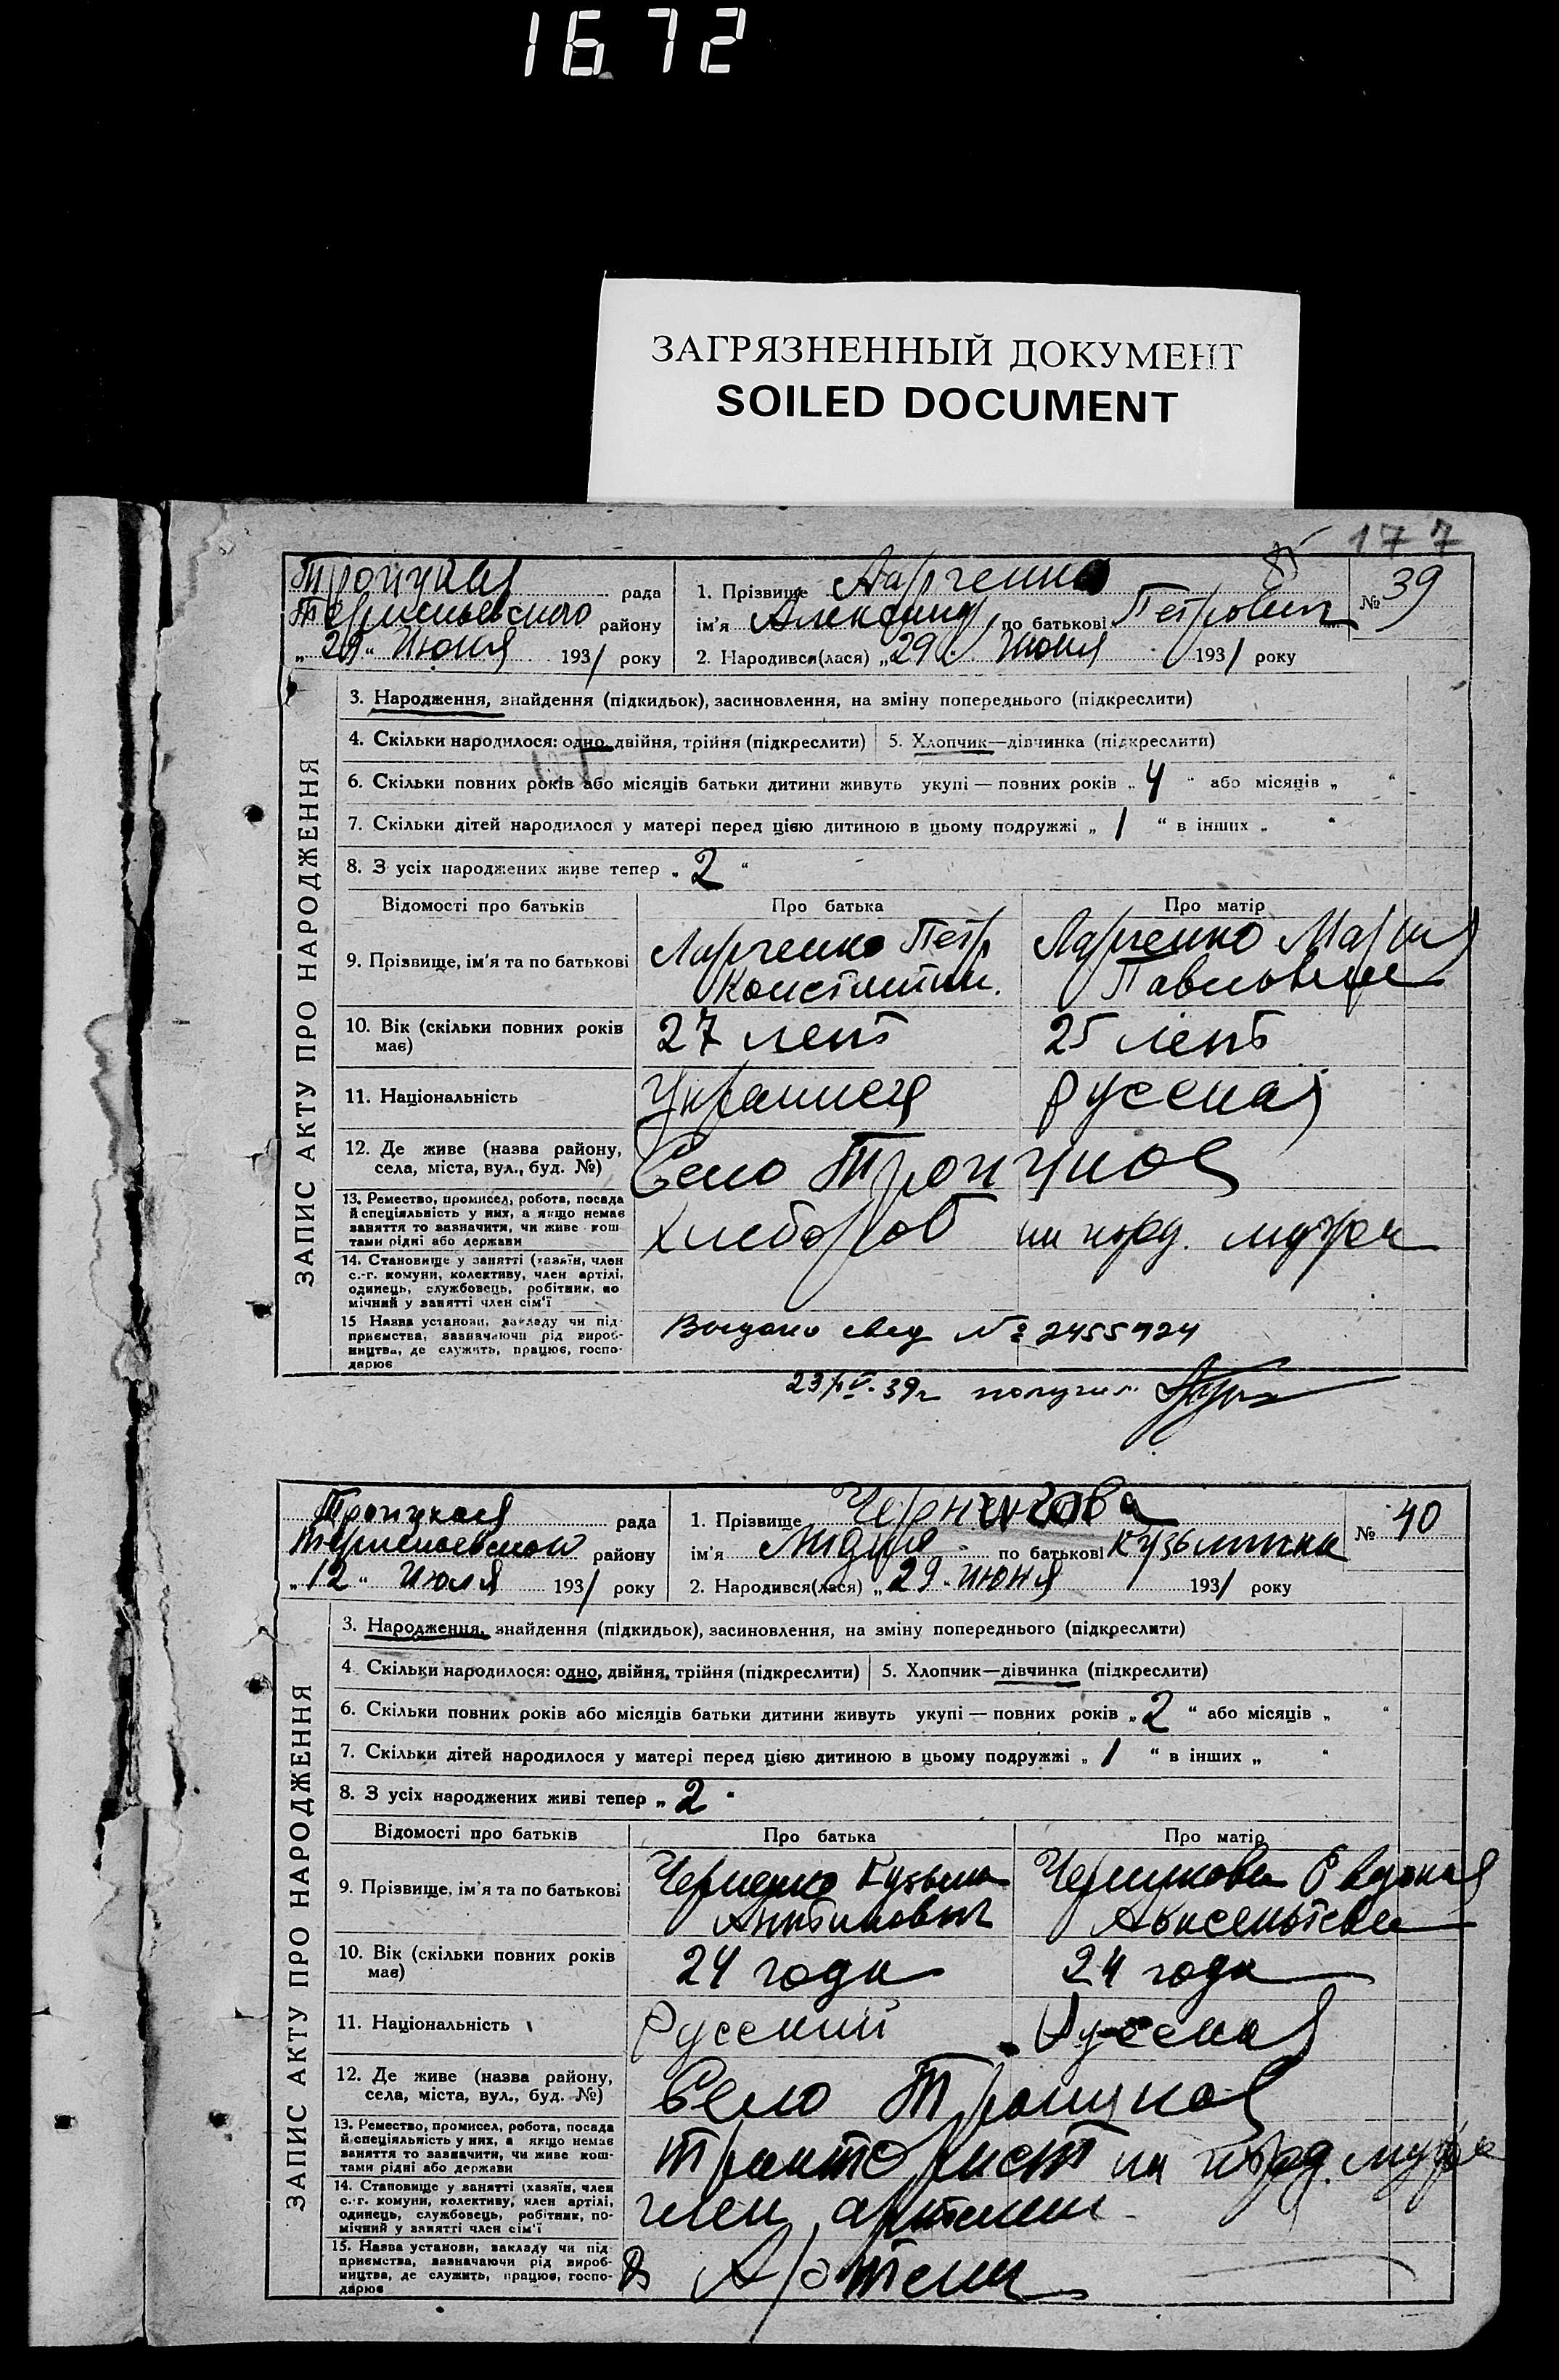 16 72
ЗАГРЯЗНЕННЫЙ ДОКУМЕНТ
SOILED DOCUMENT
177
Троицкая рада
района
"29" Июня 1931 року
1. Прізвище Ларченко
ім'я Александр по батькові Петрович
№ 39
2. Народився(лася) „29" Июня 1931 року
ЗАПИС АКТУ ПРО НАРОДЖЕННЯ
3. Народження, знайдення (підкидьок), засиновлення, на зміну попереднього (підкреслити)
4. Скільки народилося: одно, двійня, трійня (підкреслити) 5. Хлопчик—дівчинка (підкреслити)
6. Скільки повних років або місяців батьки дитини живуть укупі — повних років „ 4 " або місяців „ "
7. Скільки дітей народилося у матері перед цією дитиною в цьому подружжі „ 1 " в інших „ "
8. З усіх народжених живе тепер „ 2 "
Відомості про батьків Про батька Про матір
9. Прізвище, ім'я та по батькові Ларченко Петр Константин. Ларченко Мария Павловна
10. Вік (скільки повних років має) 27 лет 25 лет
11. Національність Украинец русская
12. Де живе (назва району, села, міста, вул., буд. №) Село Троицкое
13. Ремество, промисел, робота, посада й спеціяльність у них, а якщо немає заняття то зазначити, чи живе коштами рідні або держави хлебороб на ижд. мужа
14. Становище у занятті (хазяїн, член с.-г. комуни, колективу, член артілі, одинець, службовець, робітник, помічний у занятті член сім'ї
15 Назва установи, закладу чи підприємства, зазначаючи рід виробництва, де служить, працює, господарює
Выдано свед № 2455424
23/IV.39г получил
Троицкая рада
району
"12" Июля 1931 року
1. Прізвище
ім'я Лидия по батькові Кузьминична
№ 40
2. Народився(лася) „29" Июня 1931 року
ЗАПИС АКТУ ПРО НАРОДЖЕННЯ
3. Народження, знайдення (підкидьок), засиновлення, на зміну попереднього (підкреслити)
4 Скільки народилося: одно, двійня, трійня (підкреслити) 5. Хлопчик—дівчинка (підкреслити)
6. Скільки повних років або місяців батьки дитини живуть укупі — повних років „ 2 " або місяців „ "
7. Скільки дітей народилося у матері перед цією дитиною в цьому подружжі „ 1 " в інших „ "
8. З усіх народжених живі тепер „ 2 "
Відомості про батьків Про батька Про матір
9. Прізвище, ім'я та по батькові Кузьма Евдокия
10. Вік (скільки повних років має) 24 года 24 года
11. Національність Русский Русская
12. Де живе (назва району, села, міста, вул., буд. №) Село Троицкое
13. Ремество, промисел, робота, посада й спеціяльність у них, а якщо немає заняття то зазначити, чи живе коштами рідні або держави Тракторист на ижд. мужа
14. Становище у занятті (хазяїн, член с.-г. комуни, колективу, член артілі, одинець, службовець, робітник, помічний у занятті член сім'ї член артели
15. Назва установи, закладу чи підприємства, зазначаючи рід виробництва, де служить, працює, господарює В Артели